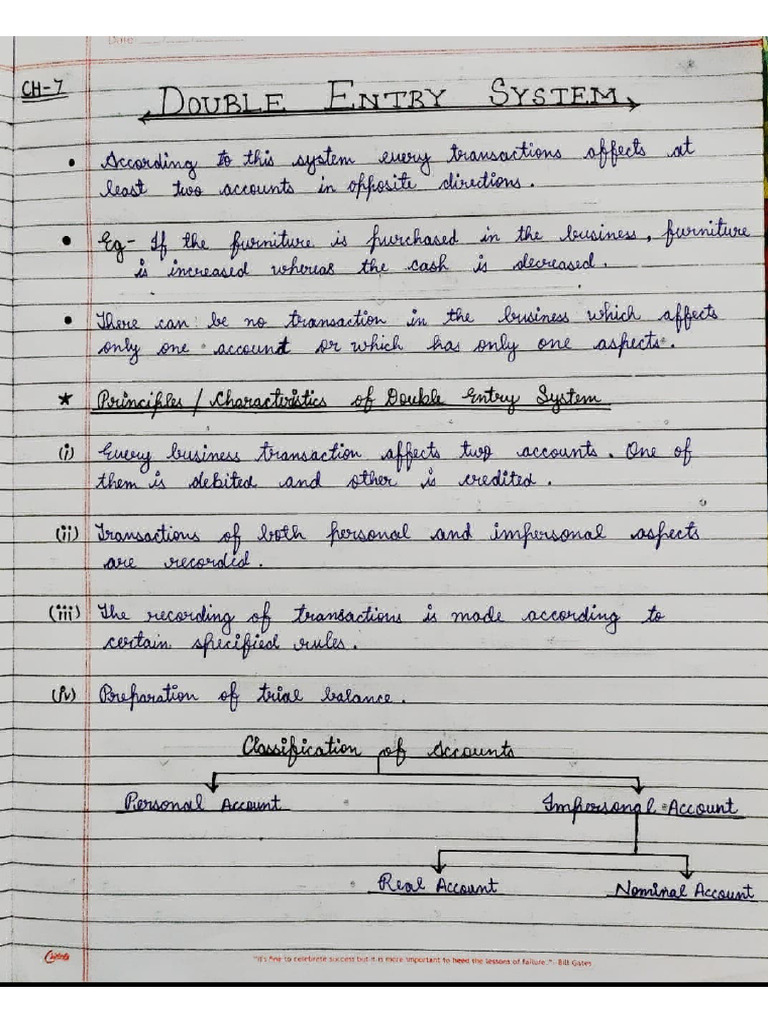 Date
CH-7
DOUBLE ENTRY SYSTEM
• According to this system every transactions affects at
least two accounts in opposite directions.
• Eg- If the furniture is purchased in the business, furniture
is increased whereas the cash is decreased.
• There can be no transaction in the business which affects
only one account or which has only one aspects.
* Principles / Characteristics of Double Entry System
(i) Every business transaction affects two accounts. One of
them is debited and other is credited.
(ii) Transactions of both personal and impersonal aspects
are recorded.
(iii) The recording of transactions is made according to
certain specified rules.
(iv) Preparation of trial balance.
Classification of Accounts
Personal Account Impersonal Account
Real Account Nominal Account
"It's fine to celebrate success but it is more important to heed the lessons of failure." - Bill Gates